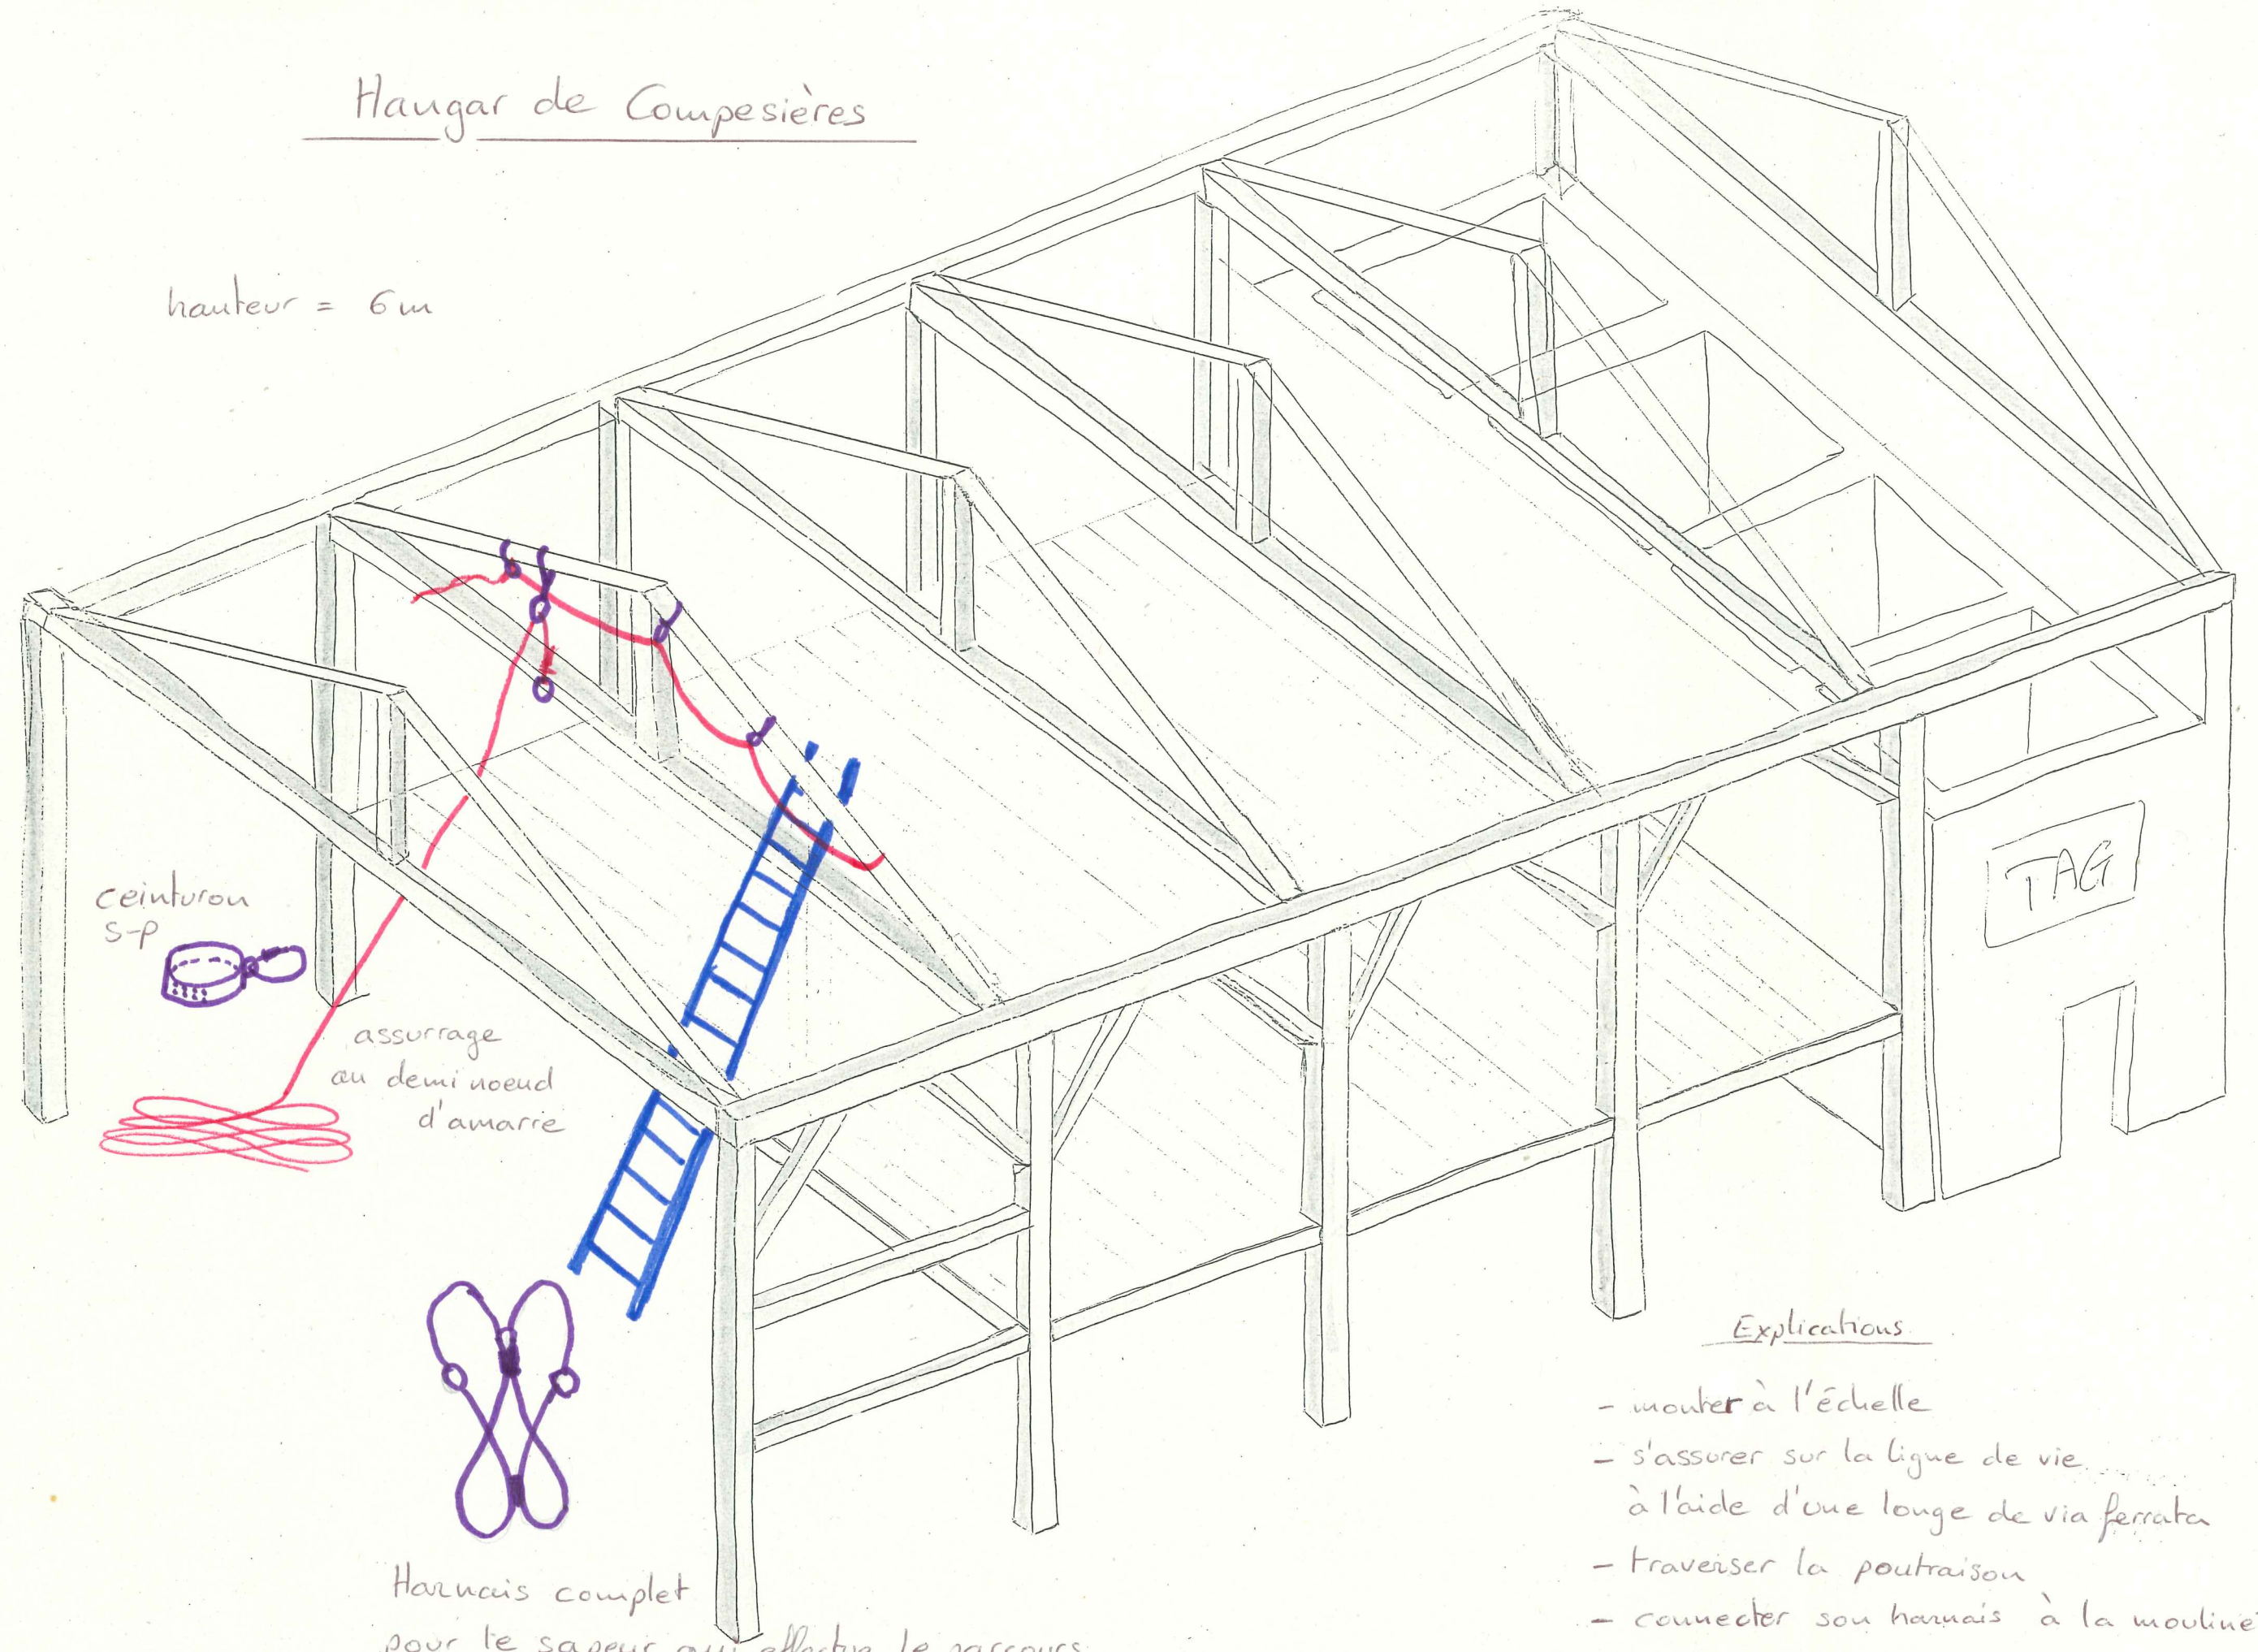 Hangar de Compesières
hauteur = 6 m
ceinturon
s-p
assurrage
au demi noeud
d'amarre
TAG
Harnais complet
pour le sapeur qui effectue le parcours
Explications
- monter à l'échelle
- s'assurer sur la ligne de vie
à l'aide d'une longe de via ferrata
- traverser la poutraison
- connecter son harnais à la mouline